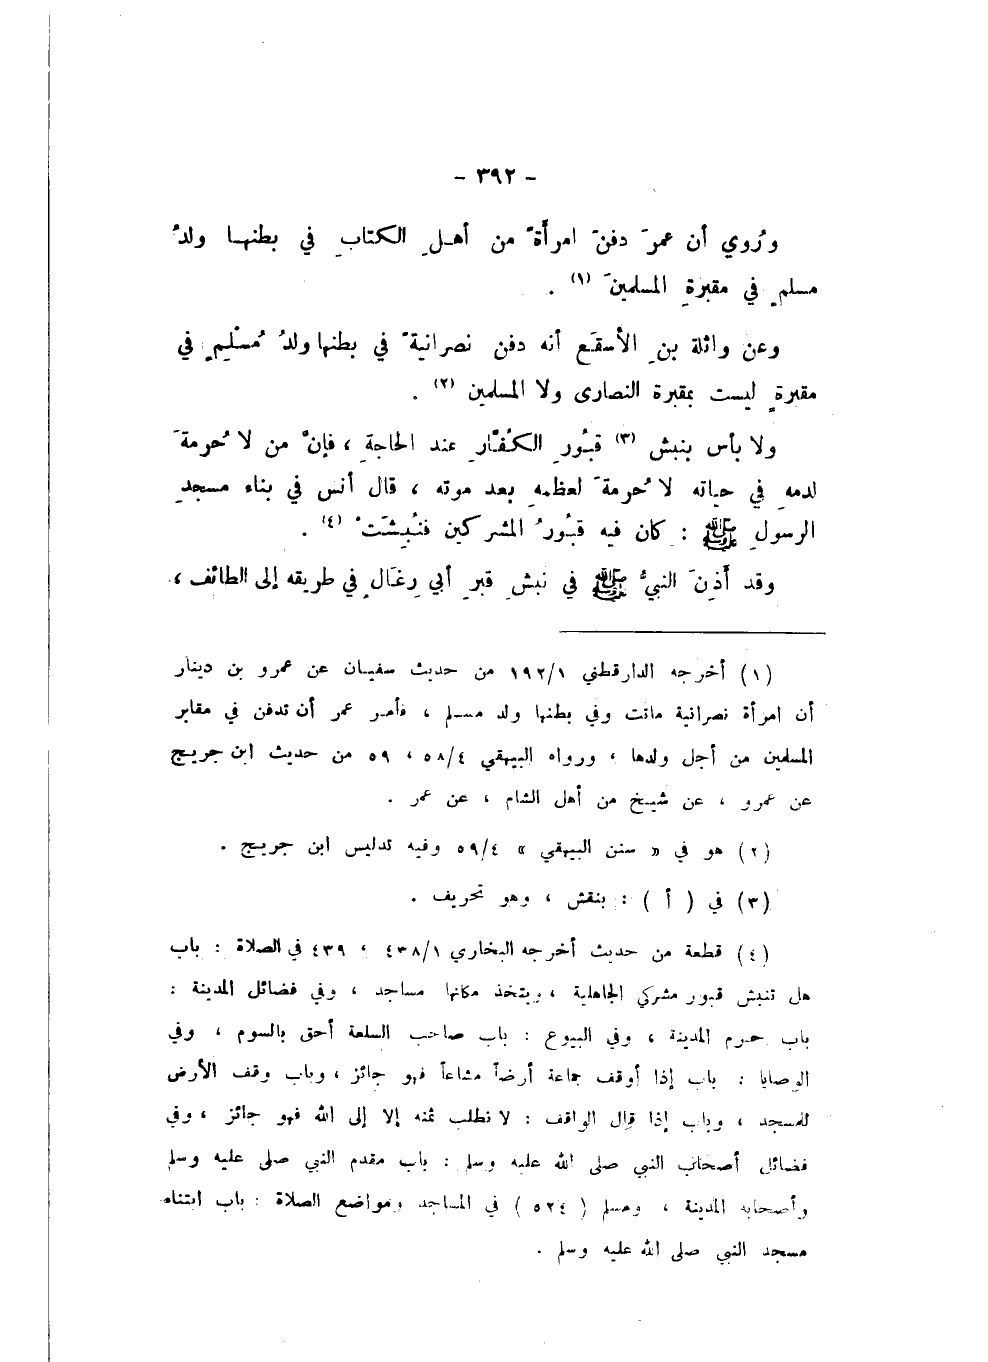 - ٣٩٢ -
ورُوي أن عمرَ دفنَ امرأةً من أهلِ الكتابِ في بطنها ولدٌ
مسلمٍ في مقبرةِ المسلمينَ (١) .
وعن واثلة بنِ الأسقَع أنه دفن نصرانيةً في بطنها ولدُ مُسْلِمٍ في
مقبرةٍ ليست بمقبرة النصارى ولا المسلمين (٢) .
ولا بأس بنبش (٣) قبُورِ الكُفَّارِ عند الحاجةِ ، فإنَّ من لا حُرمةَ
لدمهِ في حياته لا حُرمةَ لعظمهِ بعد موته ، قال أنس في بناء مسجدِ
الرسولِ ﷺ : كان فيه قبُورُ المشركين فنُبِشَتْ (٤) .
وقد أَذِنَ النبيُّ ﷺ في نبشِ قبرِ أبي رِغَالٍ في طريقه إلى الطائف ،
(١) أخرجه الدارقطني ١٩٢/١ من حديث سفيان عن عمرو بن دينار
أن امرأة نصرانية ماتت وفي بطنها ولد مسلم ، فأمر عمر أن تدفن في مقابر
المسلمين من أجل ولدها ، ورواه البيهقي ٥٨/٤ ، ٥٩ من حديث ابن جريج
عن عمرو ، عن شيخ من أهل الشام ، عن عمر .
(٢) هو في « سنن البيهقي » ٥٩/٤ وفيه تدليس ابن جريج .
(٣) في ( أ ) : بنقش ، وهو تحريف .
(٤) قطعة من حديث أخرجه البخاري ٤٣٨/١ ، ٤٣٩ في الصلاة : باب
هل تنبش قبور مشركي الجاهلية ، ويتخذ مكانها مساجد ، وفي فضائل المدينة :
باب حرم المدينة ، وفي البيوع : باب صاحب السلعة أحق بالسوم ، وفي
الوصايا : باب إذا أوقف جماعة أرضاً مشاعاً فهو جائز ، وباب وقف الأرض
للمسجد ، وباب إذا قال الواقف : لا نطلب ثمنه إلا إلى الله فهو جائز ، وفي
فضائل أصحاب النبي صلى الله عليه وسلم : باب مقدم النبي صلى عليه وسلم
وأصحابه المدينة ، ومسلم ( ٥٢٤ ) في المساجد ومواضع الصلاة : باب ابتناء
مسجد النبي صلى الله عليه وسلم .